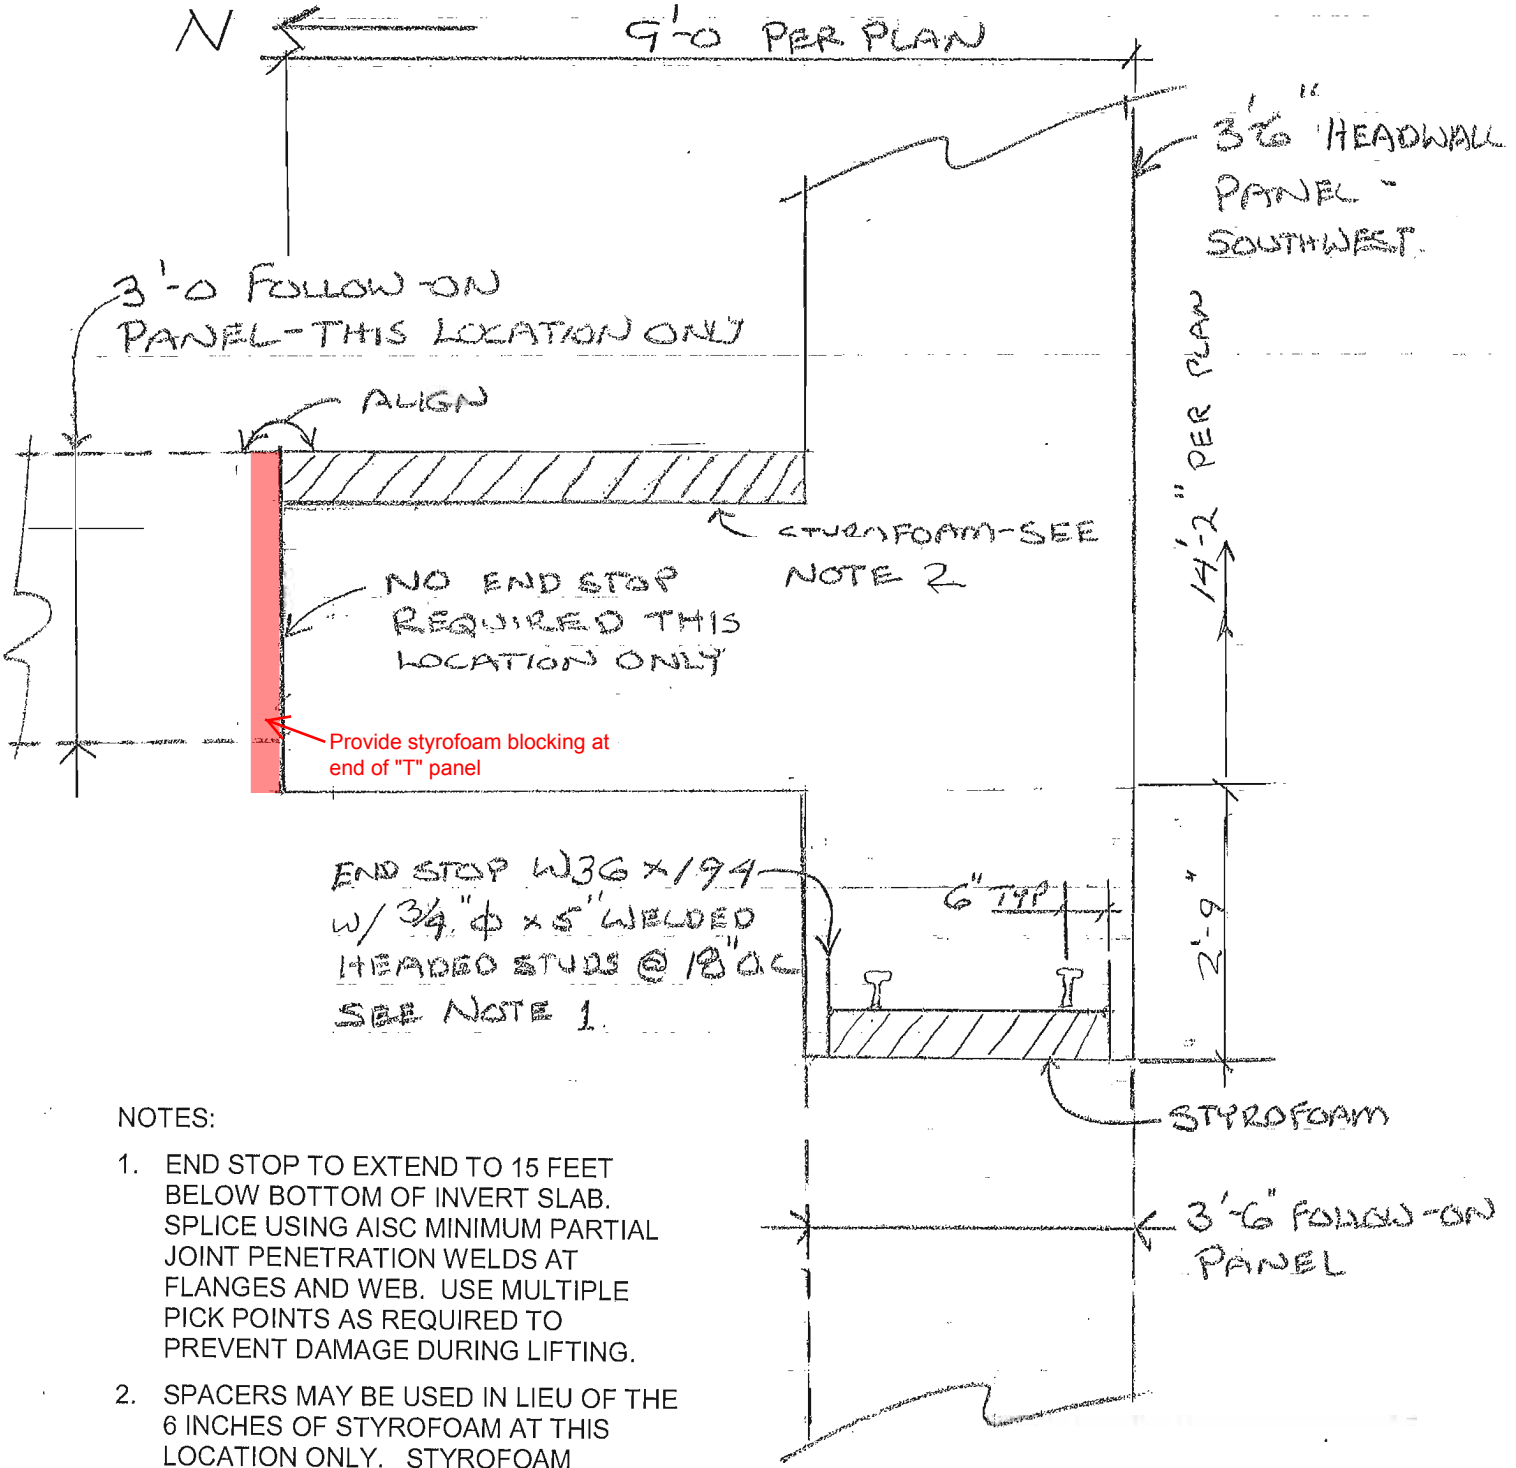 N
9'-0 PER PLAN
3'-6" HEADWALL
PANEL -
SOUTHWEST.
3'-0 FOLLOW-ON
PANEL-THIS LOCATION ONLY
ALIGN
14'-2" PER PLAN
STYROFOAM-SEE
NOTE 2
NO END STOP
REQUIRED THIS
LOCATION ONLY
Provide styrofoam blocking at
end of "T" panel
END STOP W36 x 194
W/ 3/4"ϕ x 5" WELDED
HEADED STUDS @ 18" O.C
SEE NOTE 1.
6" TYP
2'-9"
STYROFOAM
3'-6" FOLLOW-ON
PANEL
NOTES:
1. END STOP TO EXTEND TO 15 FEET
BELOW BOTTOM OF INVERT SLAB.
SPLICE USING AISC MINIMUM PARTIAL
JOINT PENETRATION WELDS AT
FLANGES AND WEB. USE MULTIPLE
PICK POINTS AS REQUIRED TO
PREVENT DAMAGE DURING LIFTING.
2. SPACERS MAY BE USED IN LIEU OF THE
6 INCHES OF STYROFOAM AT THIS
LOCATION ONLY. STYROFOAM